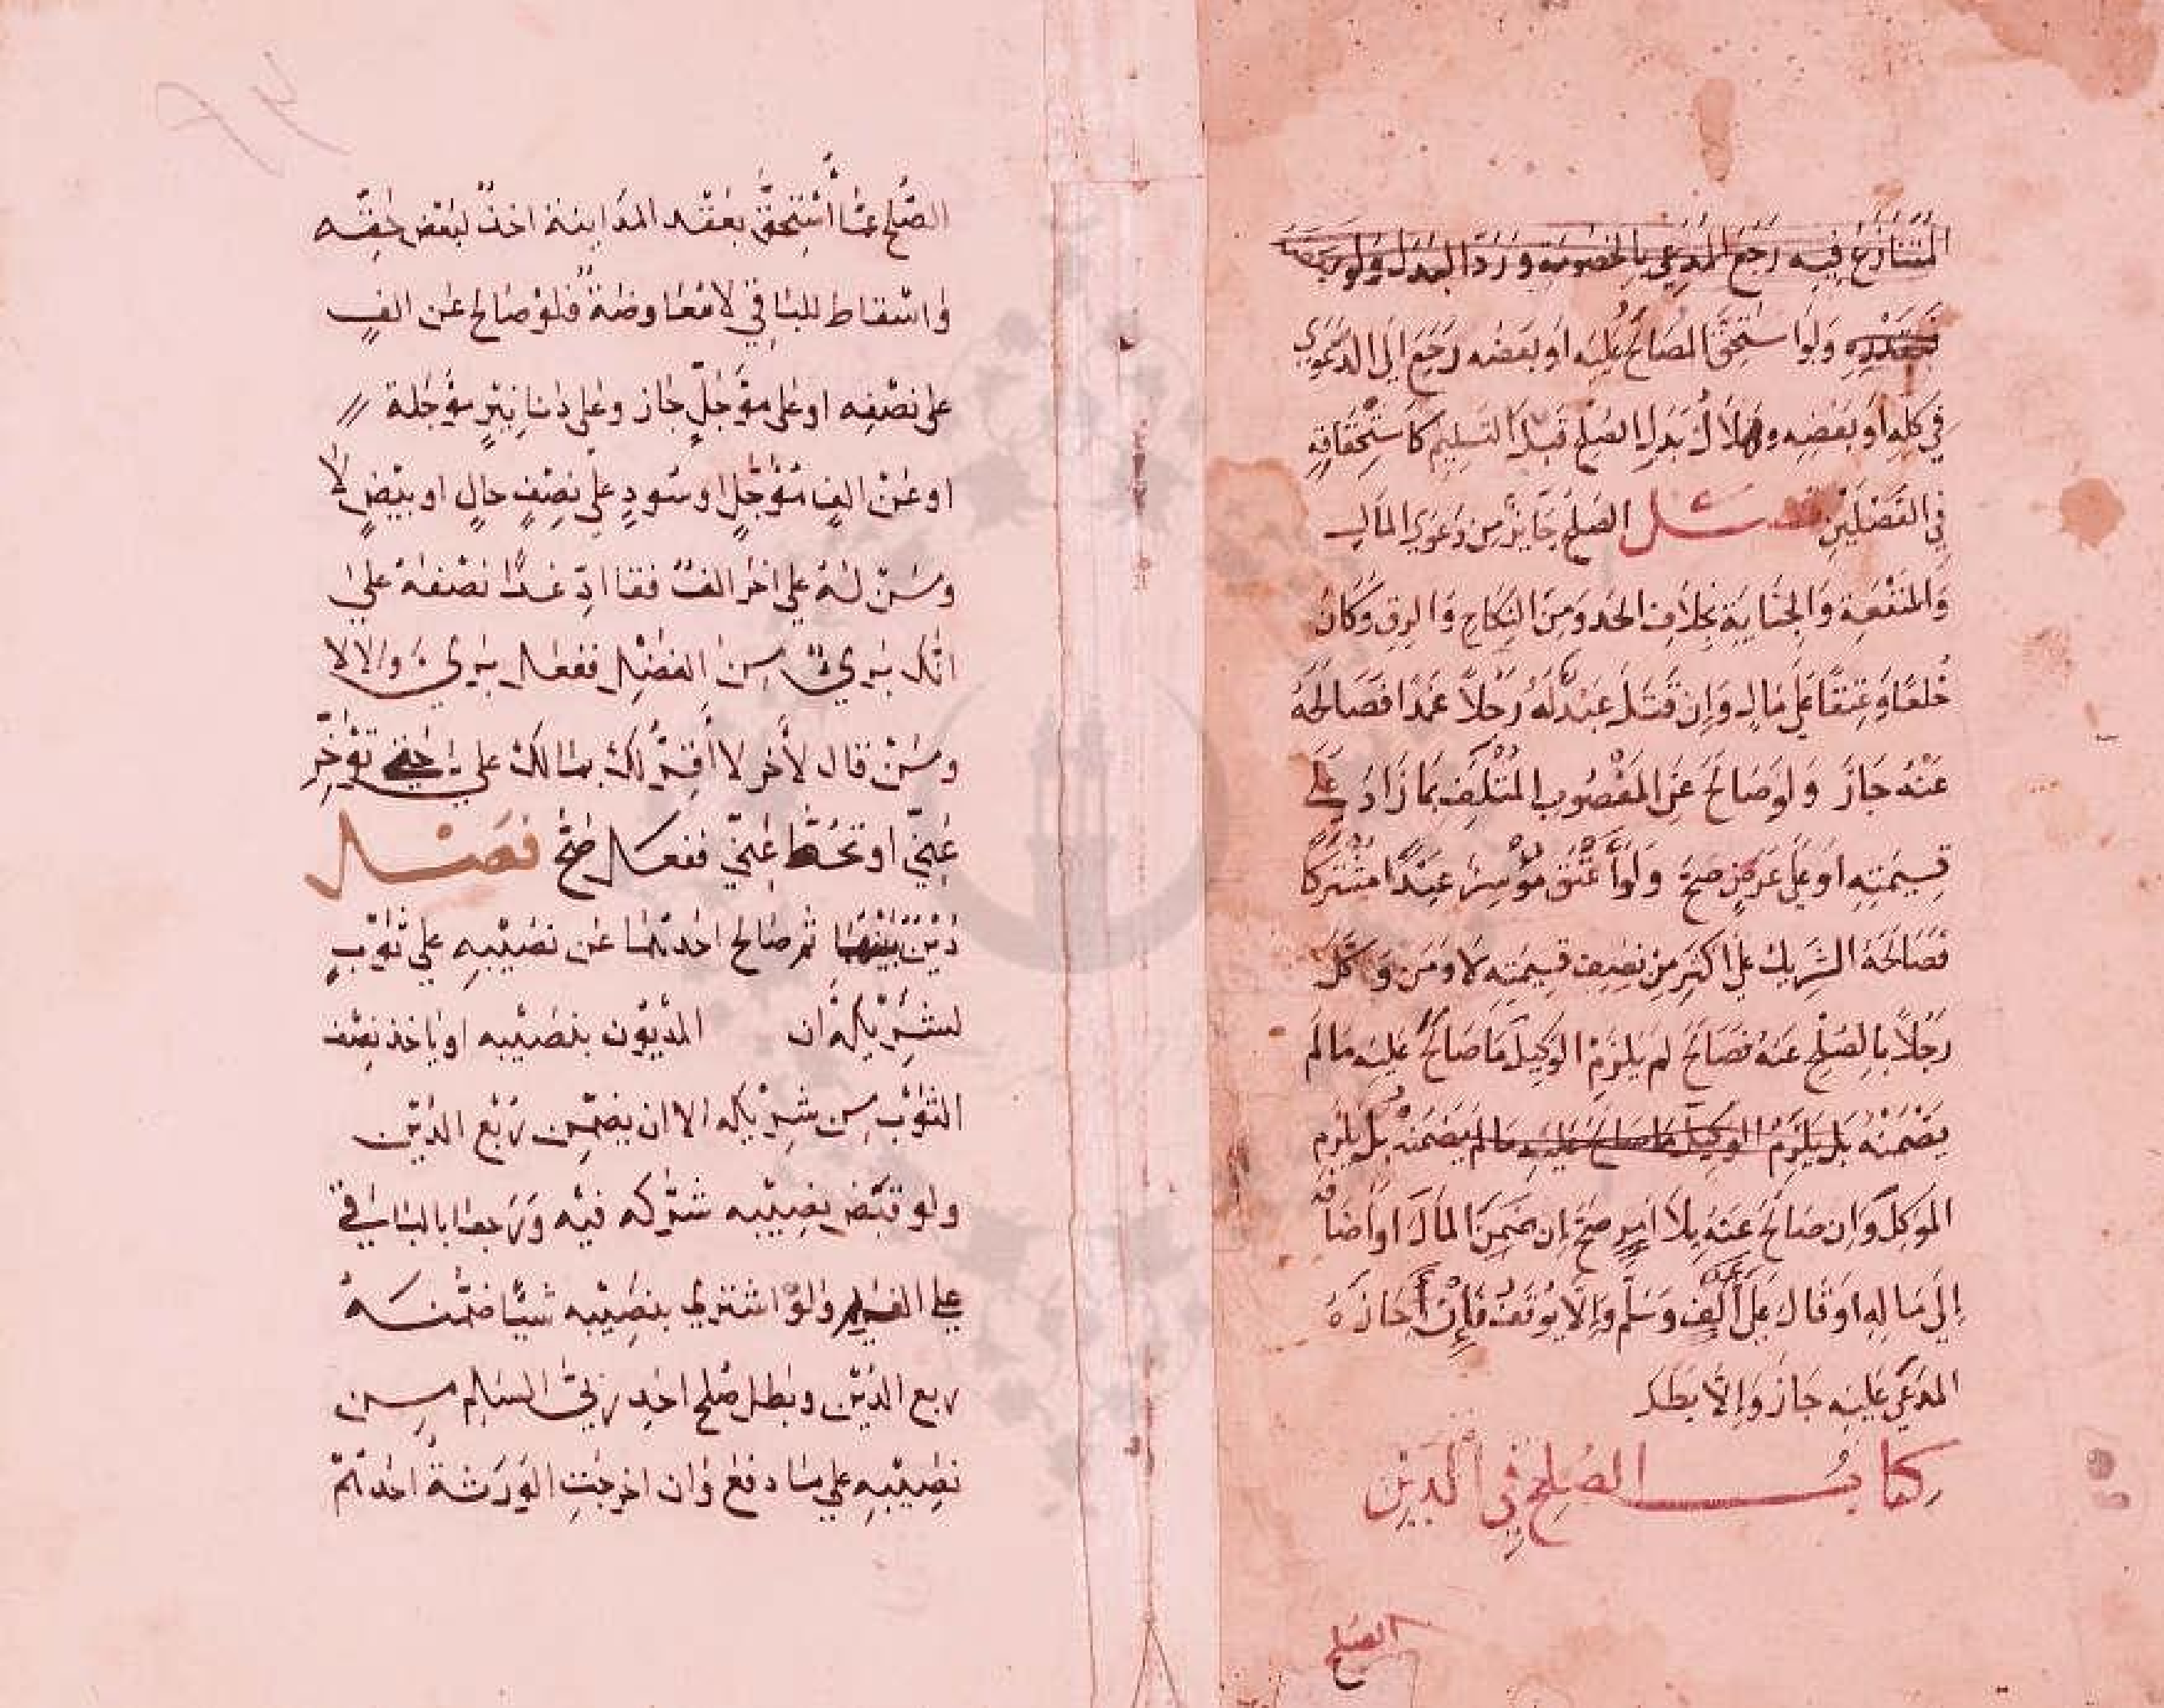 المتنازع فيه رجع المدعي بالخصومة ورد البدل ولو ببعضه
فبقدره ولو استحق المصالح عليه او بعضه رجع الي الدعوي
في كله او بعضه وهلاك بدل الصلح قبل التسليم كاستحقاقه
في الفصلين فصل الصلح جايز من دعوي المال
والمنفعة والجناية بخلاف الحد ومن النكاح والرق وكان
خلعا وعتقا علي مال وان قتل عبد له رجلا عمدا فصالحه
عنه جاز ولو صالح عن المغصوب المتلف بما زاد علي
قيمته او علي عرض صح ولو اعتق موسر عبدا مشتركا
فصالحه الشريك علي اكثر من نصف قيمته لا ومن وكل
رجلا بالصلح عنه فصالح لم يلزم الوكيل ما صالح عليه ما لم
يضمنه بل يلزم الوكيل ما صالح عليه ما لم يضمنه بل يلزم
الموكل وان صالح عنه بلا امر صح ان ضمن المال او اضافه
الي ماله او قال علي الف وسلم والا يوقف فإن أجازه
المدعي عليه جاز والا بطل
كتاب الصلح في الدين
الصلح
الصلح عما أستحق بعقد المداينة اخذ لبعض حقه
واسقاط للباقي لا معاوضة فلو صالح عن الف
علي نصفه او علي مؤجل جاز وعلي دنانير مؤجلة
او عن الف مؤجل او سود علي نصف حال او بيض لا
ومن له علي اخر الف فقا اد غدا نصفه علي
انك بريء من الفضل ففعل بريء والا لا
ومن قال لأخر لا أقر لك بمالك علي حتي تؤخر
عني او تحط عني ففعل صح فصل
دين بينهما ثم صالح احدهما عن نصيبه علي ثوب
لشريكه ان المديون بنصيبه او ياخذ نصف
الثوب من شريكه الا ان يضمن ربع الدين
ولو قبض نصيبه شركه فيه ورجعا بالباقي
علي الغريم ولو اشتري بنصيبه شيئا ضمنه
ربع الدين وبطل صلح احد ربي السلم من
نصيبه علي ما دفع وان اخرجت الورثة احدهم